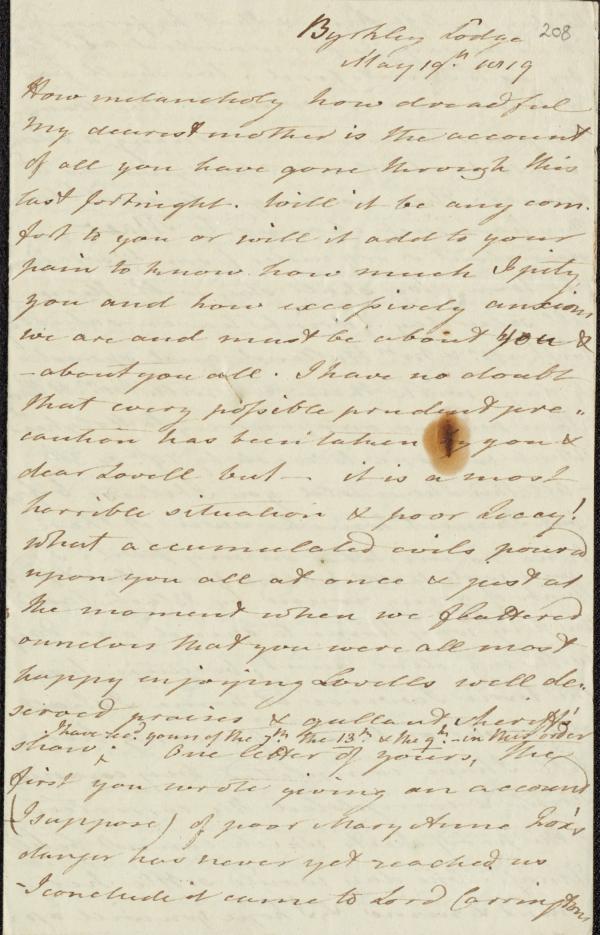 Byrkley Lodge 208
May 19th. 1819
How melancholy how dreadful
My dearest mother is the account
of all you have gone through this
last fortnight. Will it be any com-
fort to you or will it add to your
pain to know how much I pity
you and how excessively anxious
we are and must be about you &
- about you all. I have no doubt
that every possible prudent pre-
caution has been taken by you &
dear Lovell but - it is a most
horrible situation & poor Lucy!
What accumulated evils poured
upon you all at once & just at
the moment when we flattered
ourselves that you were all most
happy enjoying Lovells well de-
served praises & gallant sheriff's
I have recd. yours of the 7th the 13th. & the 9th. - in this order
show. One letter of yours, the
first you wrote giving an account
(I suppose) of poor Mary Anne Fox's
danger has never yet reached us
- I conclude it came to Lord Carringtons